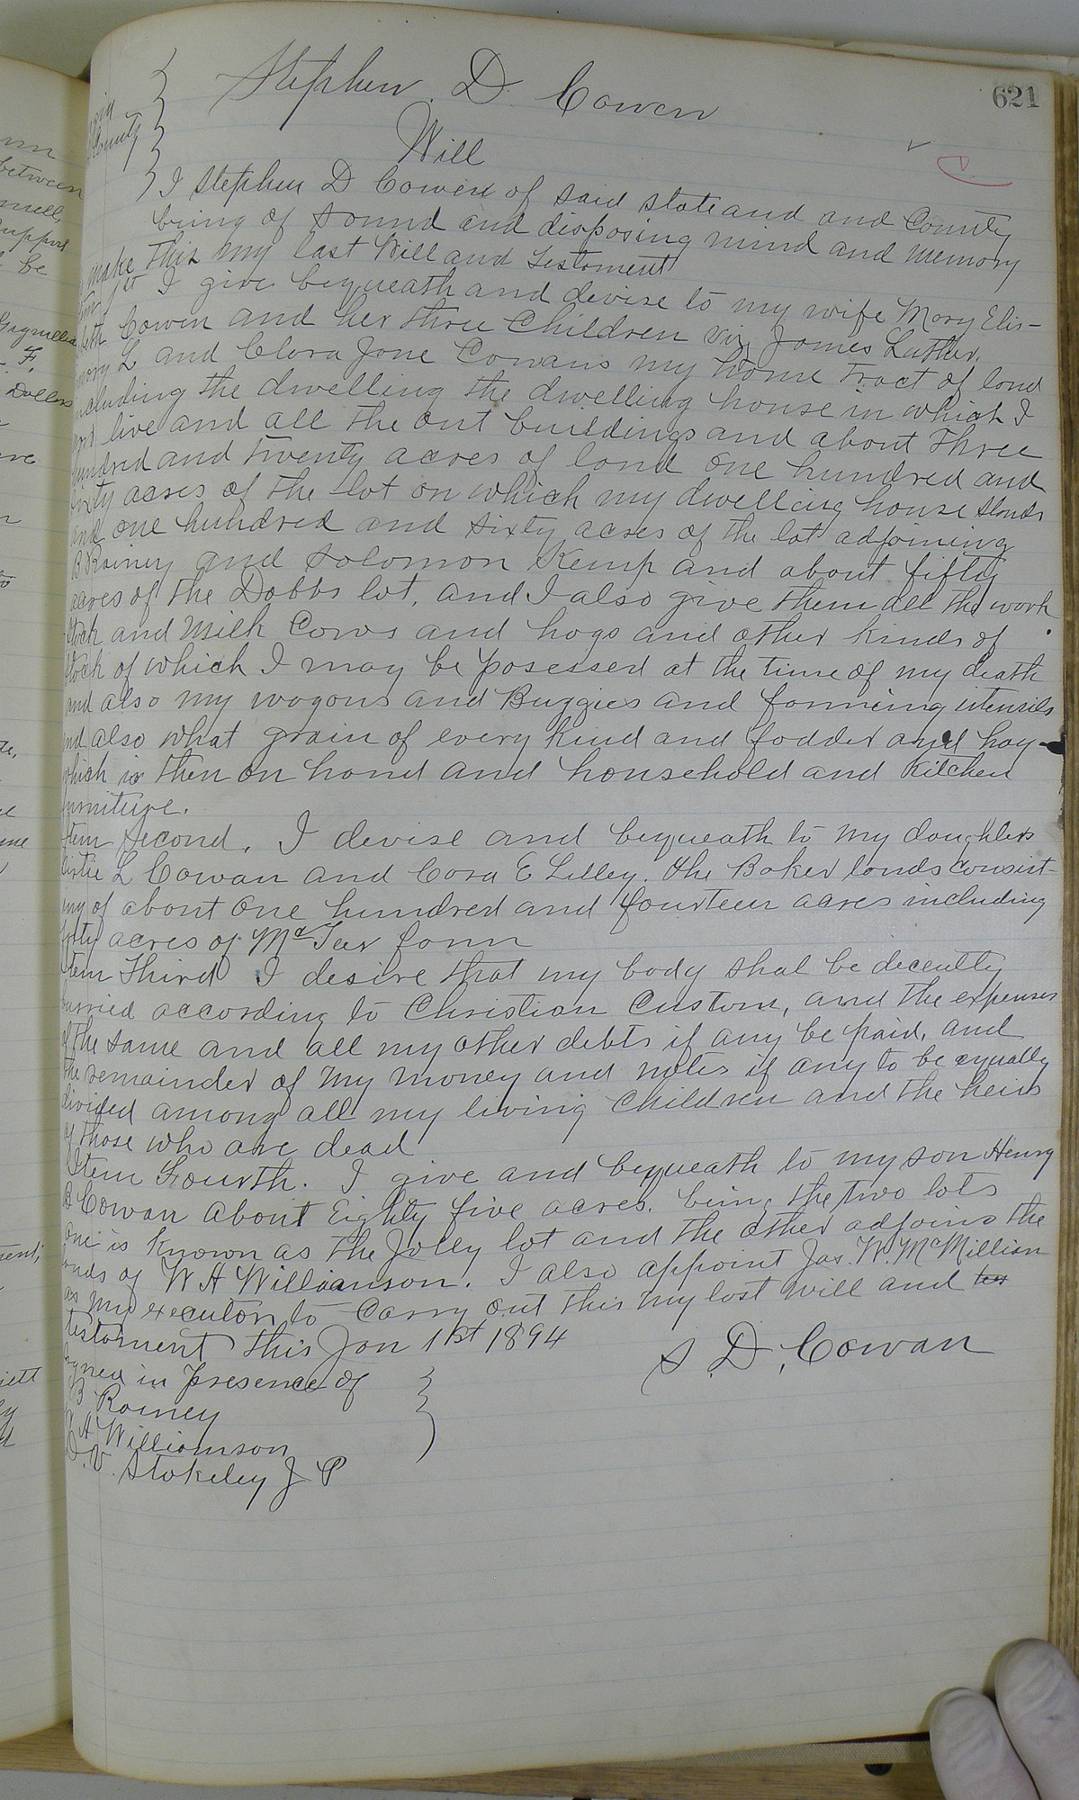 621
Stephen D Cowen
Will
County
I Stephen D Cowen of said state and and County
being of sound and disposing mind and memory
make this my last Will and Testament
I give bequeath and devise to my wife Mary Elis-
beth Cowen and her three Children viz, James Luther,
L and Clora Jane Cowans my home tract of land
including the dwelling the dwelling house in which I
live and all the out buildings and about three
hundred and twenty acres of land one hundred and
sixty acres of the lot on which my dwelling house stands
and one hundred and sixty acres of the lot adjoining
B Rainey and Solomon Kemp and about fifty
acres of the Dobbs lot, and I also give them all the work
stock and Milk Cows and hogs and other kinds of
stock of which I may be posessed at the time of my death
and also my wagons and Buggies and farming utensils
and also what grain of every kind and fodder and hay
which is then on hand and household and Kitchen
furniture.
Item Second. I devise and bequeath to my daughters
L Cowan and Cora E Lilley. the Baker lands consist-
ing of about one hundred and fourteen acres including
forty acres of McTeer farm
Item Third I desire that my body shal be decently
burried according to Christian Custom, and the expenses
of the same and all my other debts if any be paid, and
the remainder of my money and notes if any to be equally
divided among all my living Children and the heirs
of those who are dead
Item Fourth. I give and bequeath to my son Henry
B Cowan about Eighty five acres. being the two lots
one is known as the Joley lot and the other adjoins the
lands of W A Williamson. I also appoint Jas. W. McMillian
as my executor to carry out this my last will and tes
testament this Jan 1st 1894
S. D. Cowan
Signed in presence of
B Rainey
A Williamson
V. Stokeley J P
between
be
F,
Dollars